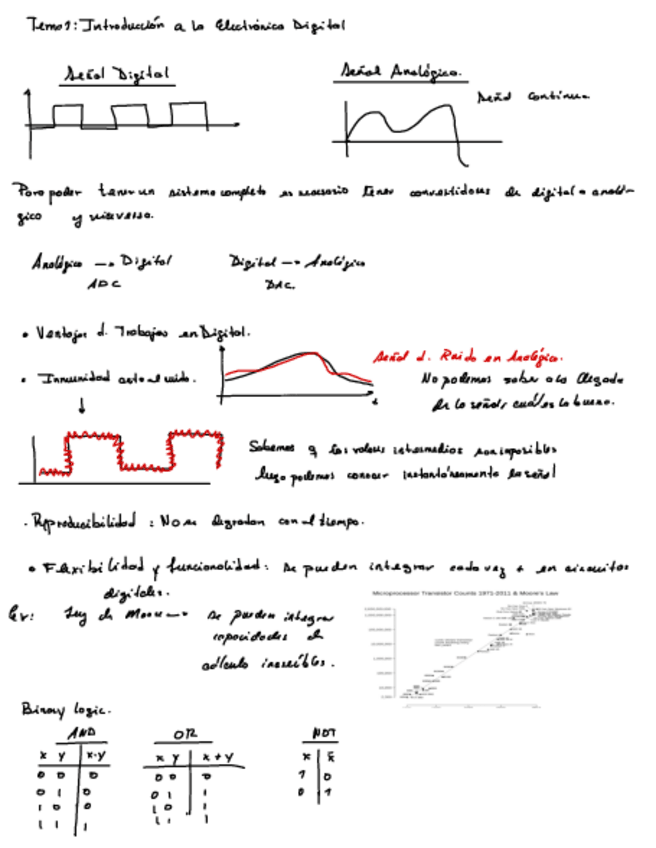 Tema 1: Introducción a la Electrónica Digital
Señal Digital
Señal Analógica.
Señal continua.
Para poder tener un sistema completo es necesario tener convertidores de digital a analó-
gico y viceversa.
Analógico → Digital
ADC
Digital → Analógico
DAC.
• Ventajas d. Trabajar en Digital.
• Inmunidad ante al ruido.
Señal d. Ruido en Analógica.
No podemos saber a la llegada
de la señal cuál es la buena.
t
Sabemos q los valores intermedios son imposibles
luego podemos conocer instantáneamente la señal
. Reproducibilidad : No se degradan con el tiempo.
• Flexibilidad y funcionalidad: Se pueden integrar cada vez + en circuitos
digitales.
Ex: Ley de Moore → Se pueden integrar
capacidades de
cálculo increíbles.
Microprocessor Transistor Counts 1971-2011 & Moore's Law
Binary logic.
AND
x y x·y
0 0 0
0 1 0
1 0 0
1 1 1
OR
x y x+y
0 0 0
0 1 1
1 0 1
1 1 1
NOT
x x̄
1 0
0 1